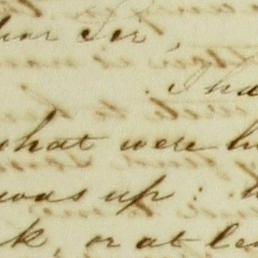 Dear Sir,
I ha
what were h
was up:
k, or at le